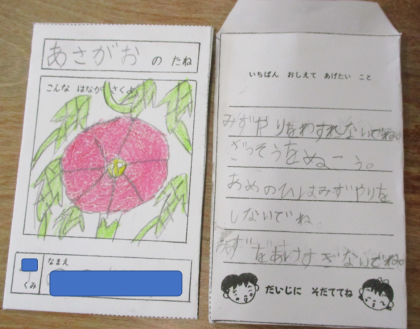 あさがお の たね
こんな はながさくよ
なまえ
くみ
いちばん おしえて あげたい こと
みずやりをわすれないでね。
ざっそうをぬこう。
あめのひはみずやりを
しないでね
みずをあげすぎないでね。
だいじに そだててね